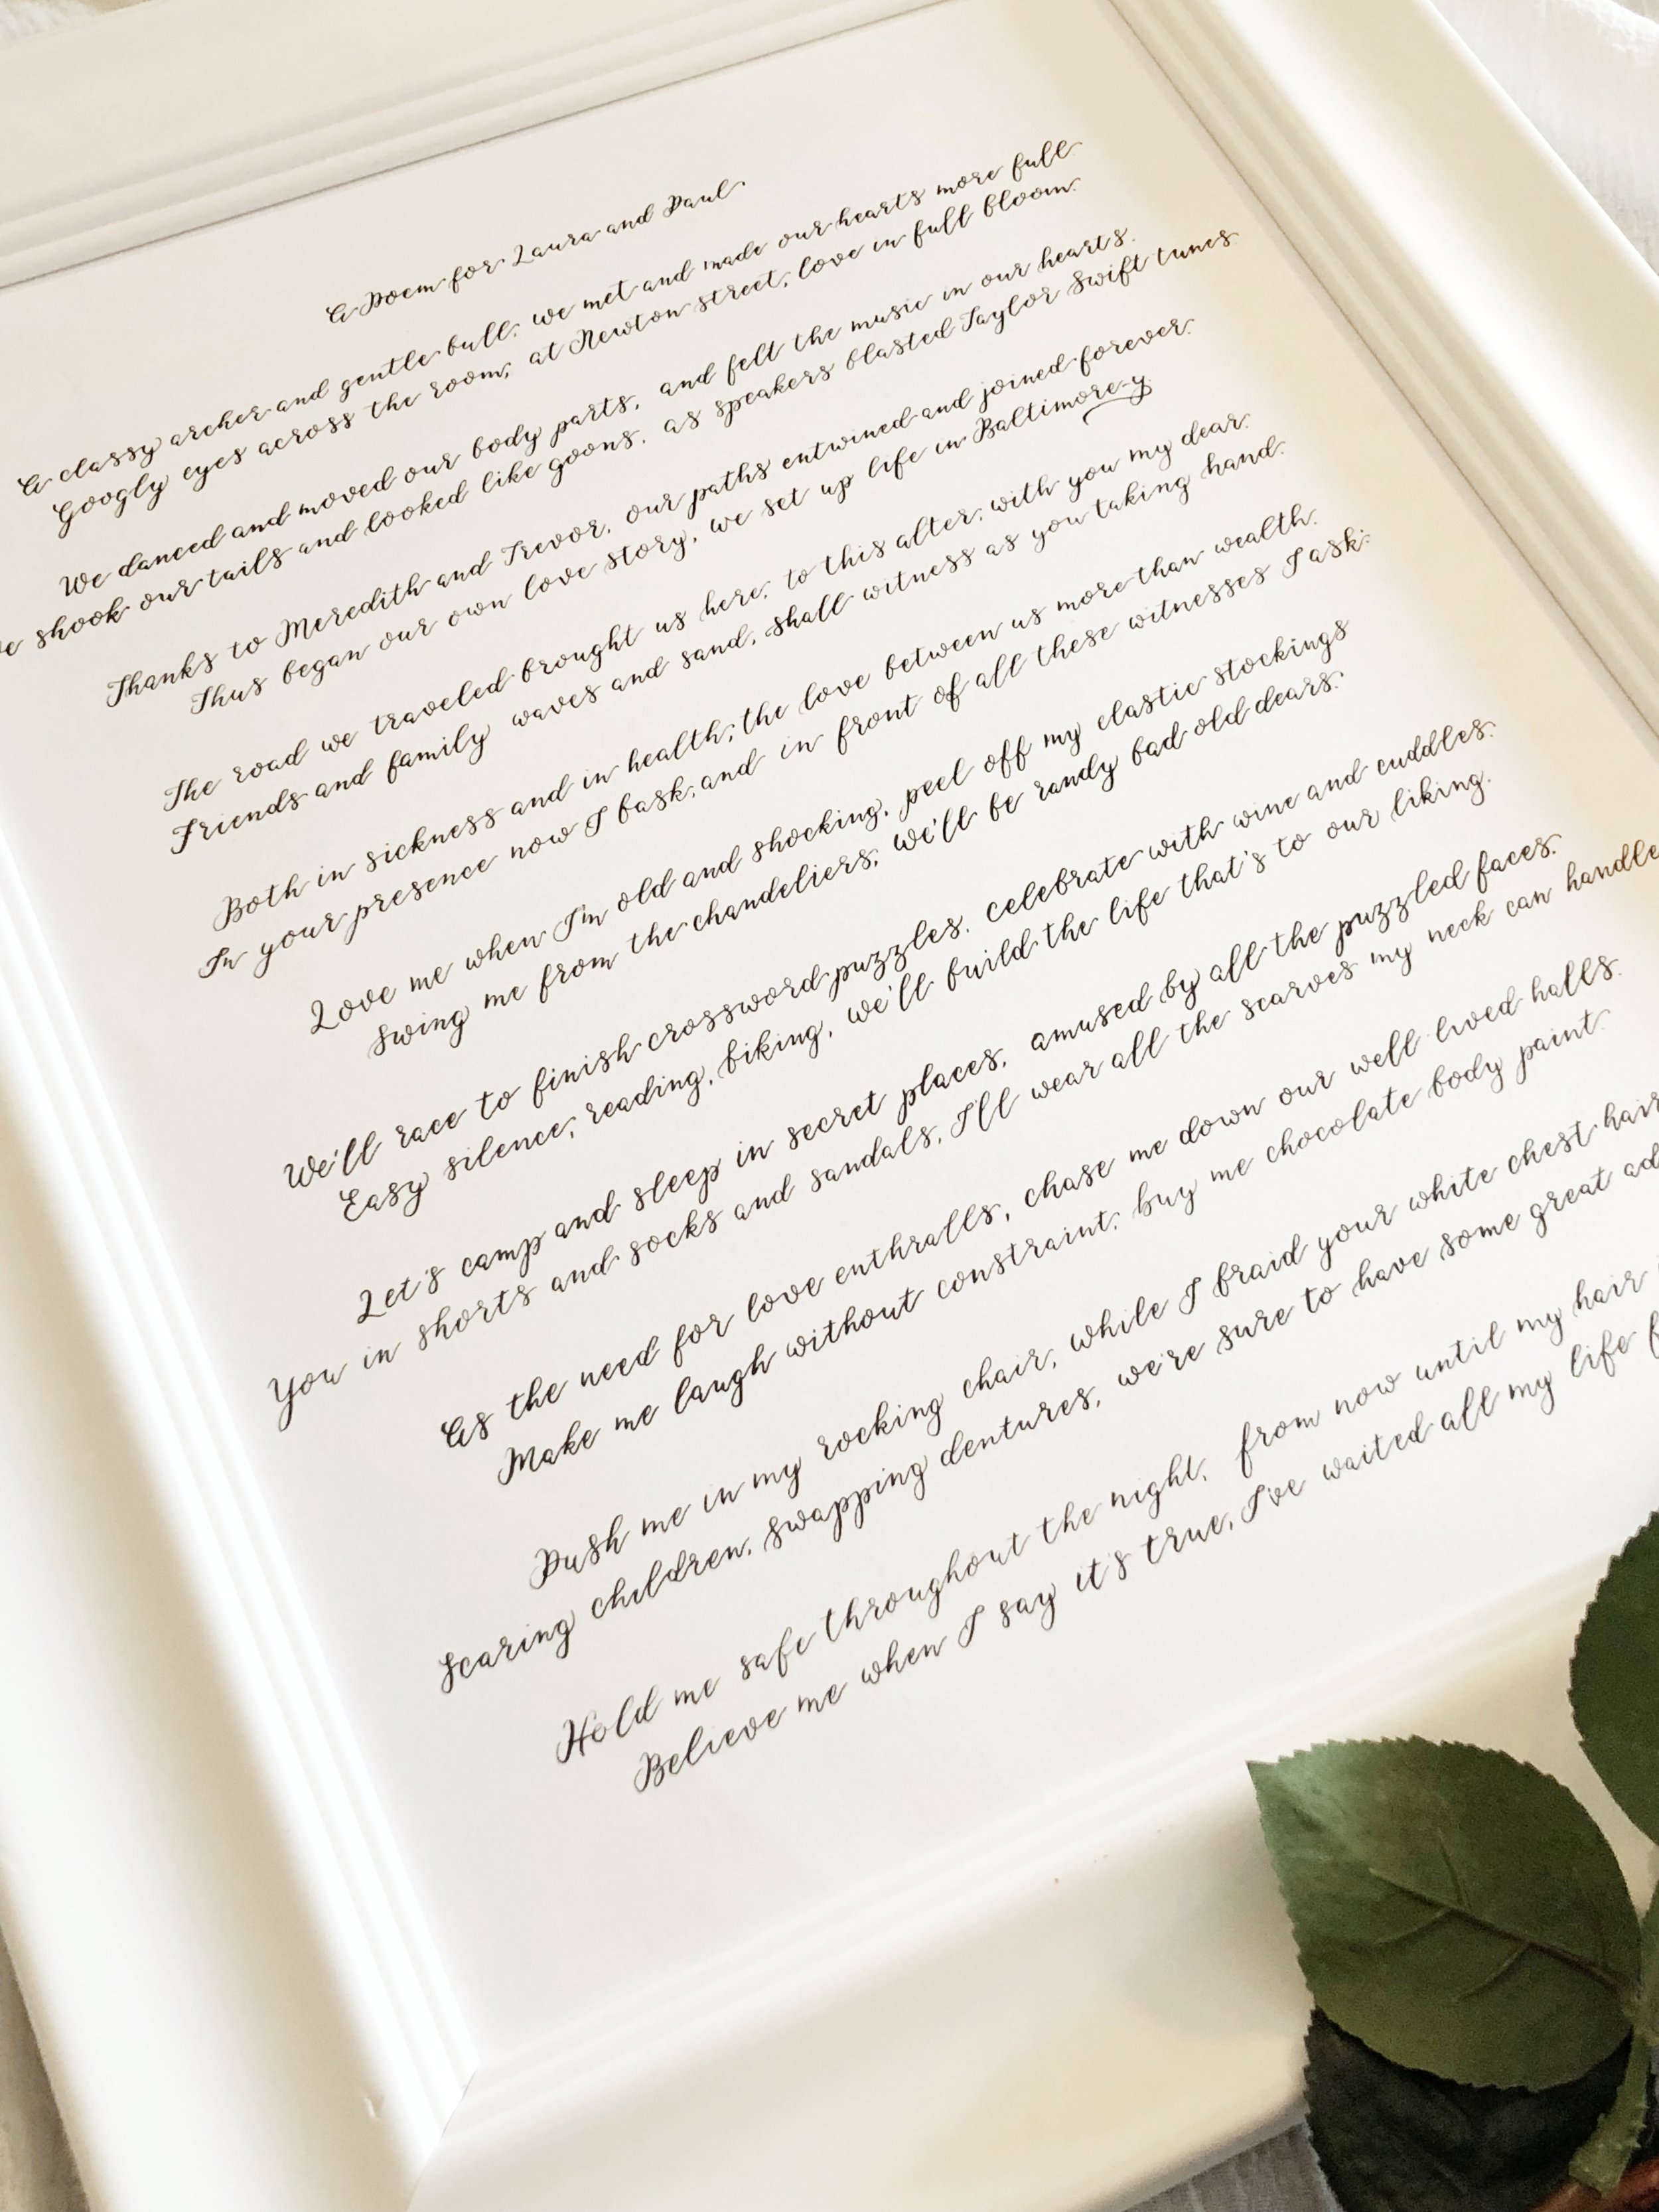 A Poem for Laura and Paul
A classy archer and gentle bull, we met and made our hearts more full
Googly eyes across the room, at Newton street, love in full bloom.
We danced and moved our body parts, and felt the music in our hearts.
shook our tails and looked like goons, as speakers blasted Taylor Swift tunes.
Thanks to Meredith and Trevor, our paths entwined and joined forever.
Thus began our own love story, we set up life in Baltimore-y
The road we traveled brought us here, to this alter, with you my dear.
Friends and family waves and sand, shall witness as you taking hand.
Both in sickness and in health, the love between us more than wealth.
In your presence now I bask, and in front of all these witnesses I ask:
Love me when I'm old and shocking, peel off my elastic stockings
Swing me from the chandeliers, we'll be randy bad old dears.
We'll race to finish crossword puzzles, celebrate with wine and cuddles.
Easy silence, reading, biking, we'll build the life that's to our liking.
Let's camp and sleep in secret places, amused by all the puzzled faces.
You in shorts and socks and sandals, I'll wear all the scarves my neck can handle
As the need for love enthralls, chase me down our well lived halls.
Make me laugh without constraint, buy me chocolate body paint.
Push me in my rocking chair, while I braid your white chest hair
Scaring children, swapping dentures, we're sure to have some great ad
Hold me safe throughout the night, from now until my hair
Believe me when I say it's true, I've waited all my life